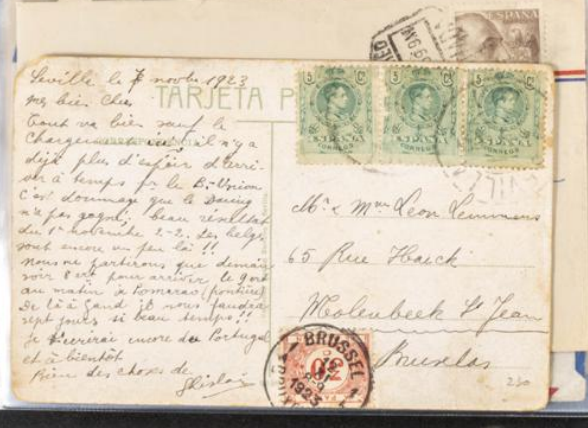 Seville le 7 novbr 1923
mes bien chers
Tout va bien sauf le
chargement ici, il n'y a
déjà plus d'espoir d'arri-
ver à temps pr le B.-Union
C'est dommage que le Daring
n'a pas gagné. beau résultat
du 1er novembre 2-2. Les belges
sont encore un peu là !!
nous ne partirons que demain
soir 8 ert pour arriver le 9 ort
au matin à Pomarao (
De là à Gand il nous faudra
sept jours si beau temps !!
Je t'écrirai encore du Portugal
et à bientôt
Bien des choses de
Ghislain
TARJETA P
CORRESPONDENCIA
5 Cs 5 Cs 5 Cs
ESPAÑA ESPAÑA ESPAÑA
CORREOS CORREOS CORREOS
ESPAÑA
Mr & Mme Leon Lemmens
65 Rue Haeck
Molenbeek St Jean
Bruxelas
BRUSSEL 1
1923
230